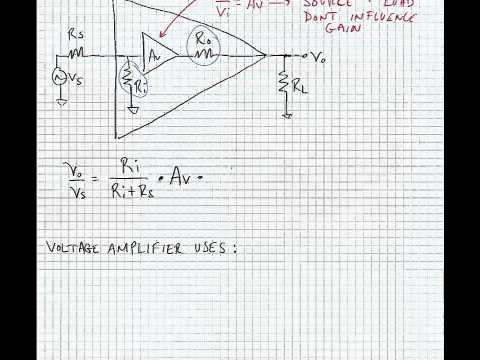 Vi = Av → SOURCE + LOAD
DONT INFLUENCE
GAIN
Rs
Av
Ro
Vo
Vs
Ri
RL
Vo/Vs = Ri/(Ri+Rs) • Av •
VOLTAGE AMPLIFIER USES: